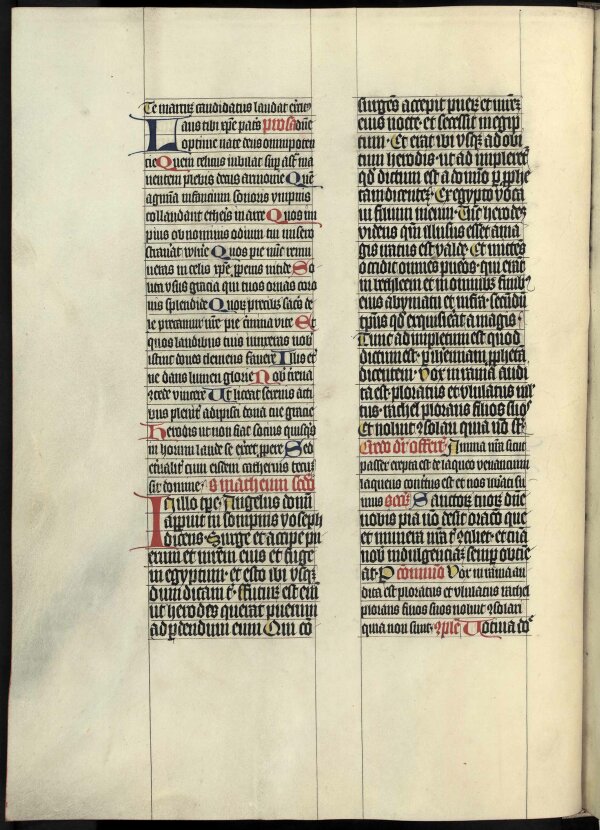 Te martirũ candidatus laudat exercitus
Laus tibi xp̃e patris prosa dñe
optime nate deus omnipoten
cie Quem celitus iubilat sup astra ma
nentem plebis decus armonie Quẽ
agmina infantium sonoris ympnis
collaudant etheris in arce Quos im
pius ob nominis odium tui misero
strauat wlnere Quos pie nũc remu
neras in celis xp̃e ꝓprius nitide So
lita vsus gracia qui tuos ornas coro
nis splendide Quorũ precibus sacris de
le precamur nr̃e pie crimina vite Et
quos laudibus tuis iunxeras nob
istinc dones clemens fauere Illis et
ne dans lumen glorie Nob̾ terrea
vincere Ut liceat serenis acti
bus plenit̾ adipisci dona tue gracie
Herodis ut non fiat socius quisq̃s
in horum laude se exercet ppere Sed
et̾naliter cum eisdem catheruis tecũ
sit domine s matheum scdm
In illo tp̃e Angelus domĩ
apparuit in sompnis yoseph
dicens Surge et accipe pu
erum et mr̃em eius et fuge
in egyptum et esto ibi vsq̃
dum dicam t̾ futurũ est enĩ
ut herodes querat puerum
ad ꝑdendum eum Qui cõ
surgens accepit puerũ et mr̃em
eius nocte et secessit in egip
tum Et erat ibi vsq̃ ad obi
tum herodis ut adimpleret̾
qd̾ dictum est a domĩo ꝑ ꝓphe
tam dicentem Ex egypto voca
ui filium meum Tũc herodes
videns qm̃ illusus esset a ma
gis iratus est valde Et mittẽs
occidit omnes pueros qui erãt
in bethleem et in omnibus finib̾
eius a bymatu et infra secũdũ
tp̃us qd̾ exquisierat a magis
Tunc adimpletum est quod
dictum est ꝑ yheremiam ꝓphetã
dicentem Vox in rama audi
ta est ploratus et vlulatus ml̾
tus rachel plorans filios suos
Et noluit ꝯsolari quia nõ sũt
Credo dr̃ offert̾ Anima nr̃a sicut
passer erepta est de laqueo venancium
laqueus contritus est et nos lib̾ati su
mus secr̾ Sanctorũ tuorũ dñe
nobis pia nõ desit oracõ que
et munera nr̃a ꝯciliet et tuã
nob̾ indulgenciã semꝑ optine
at P Comm̃io Vox in rama au
dita est ploratus et vlulatus rachel
plorans filios suos noluit ꝯsolari
quia non sunt ꝯplẽ Uotiua dñe